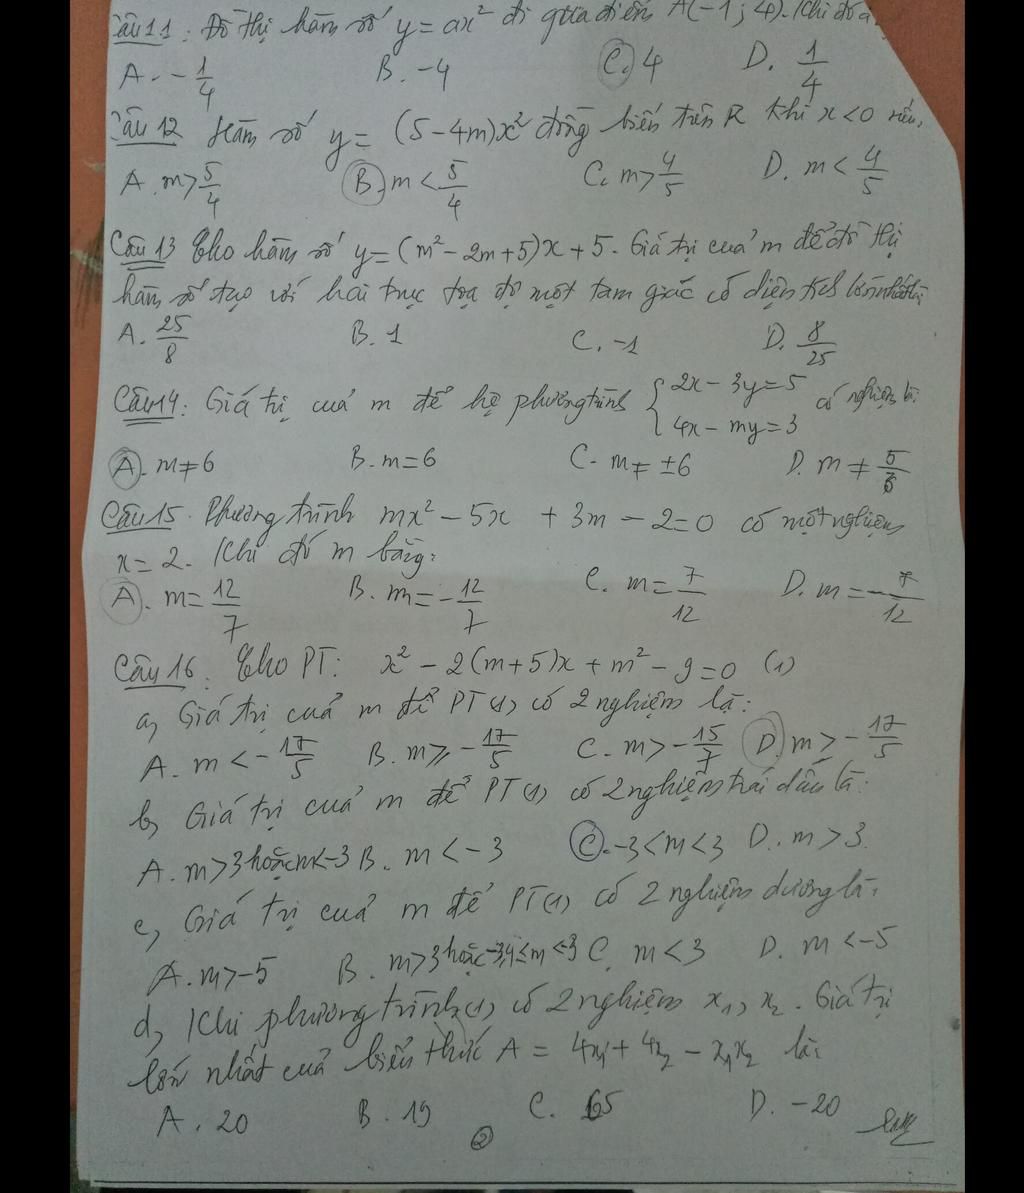 Câu 11: Đồ thị hàm số y = ax² đi qua điểm A(-1; 4). Khi đó a
A. -1/4 B. -4 C. 4 D. 1/4
Câu 12 Hàm số y = (5 - 4m)x² đồng biến trên R khi x < 0 nếu:
A. m > 5/4 B. m < 5/4 C. m > 4/5 D. m < 4/5
Câu 13 Cho hàm số y = (m² - 2m + 5)x + 5. Giá trị của m để đồ thị
hàm số tạo với hai trục tọa độ một tam giác có diện tích lớn nhất là
A. 25/8 B. 1 C. -1 D. 8/25
Câu 14: Giá trị của m để hệ phương trình { 2x - 3y = 5 có nghiệm là:
4x - my = 3
A. m ≠ 6 B. m = 6 C. m ≠ ±6 D. m ≠ 5/6
Câu 15. Phương trình mx² - 5x + 3m - 2 = 0 có một nghiệm
x = 2. Khi đó m bằng:
A. m = 12/7 B. m = -12/7 C. m = 7/12 D. m = -7/12
Câu 16: Cho PT: x² - 2(m+5)x + m² - 9 = 0 (1)
a, Giá trị của m để PT(1) có 2 nghiệm là:
A. m < -17/5 B. m ≥ -17/5 C. m > -15/7 D. m > -17/5
b, Giá trị của m để PT(1) có 2 nghiệm trái dấu là:
A. m > 3 hoặc m < -3 B. m < -3 C. -3 < m < 3 D. m > 3.
c, Giá trị của m để PT(1) có 2 nghiệm dương là:
A. m > -5 B. m > 3 hoặc -3,4 ≤ m < -3 C. m < 3 D. m < -5
d, Khi phương trình (1) có 2 nghiệm x₁, x₂. Giá trị
lớn nhất của biểu thức A = 4x₁ + 4x₂ - x₁x₂ là:
A. 20 B. 19 C. 65 D. -20
2